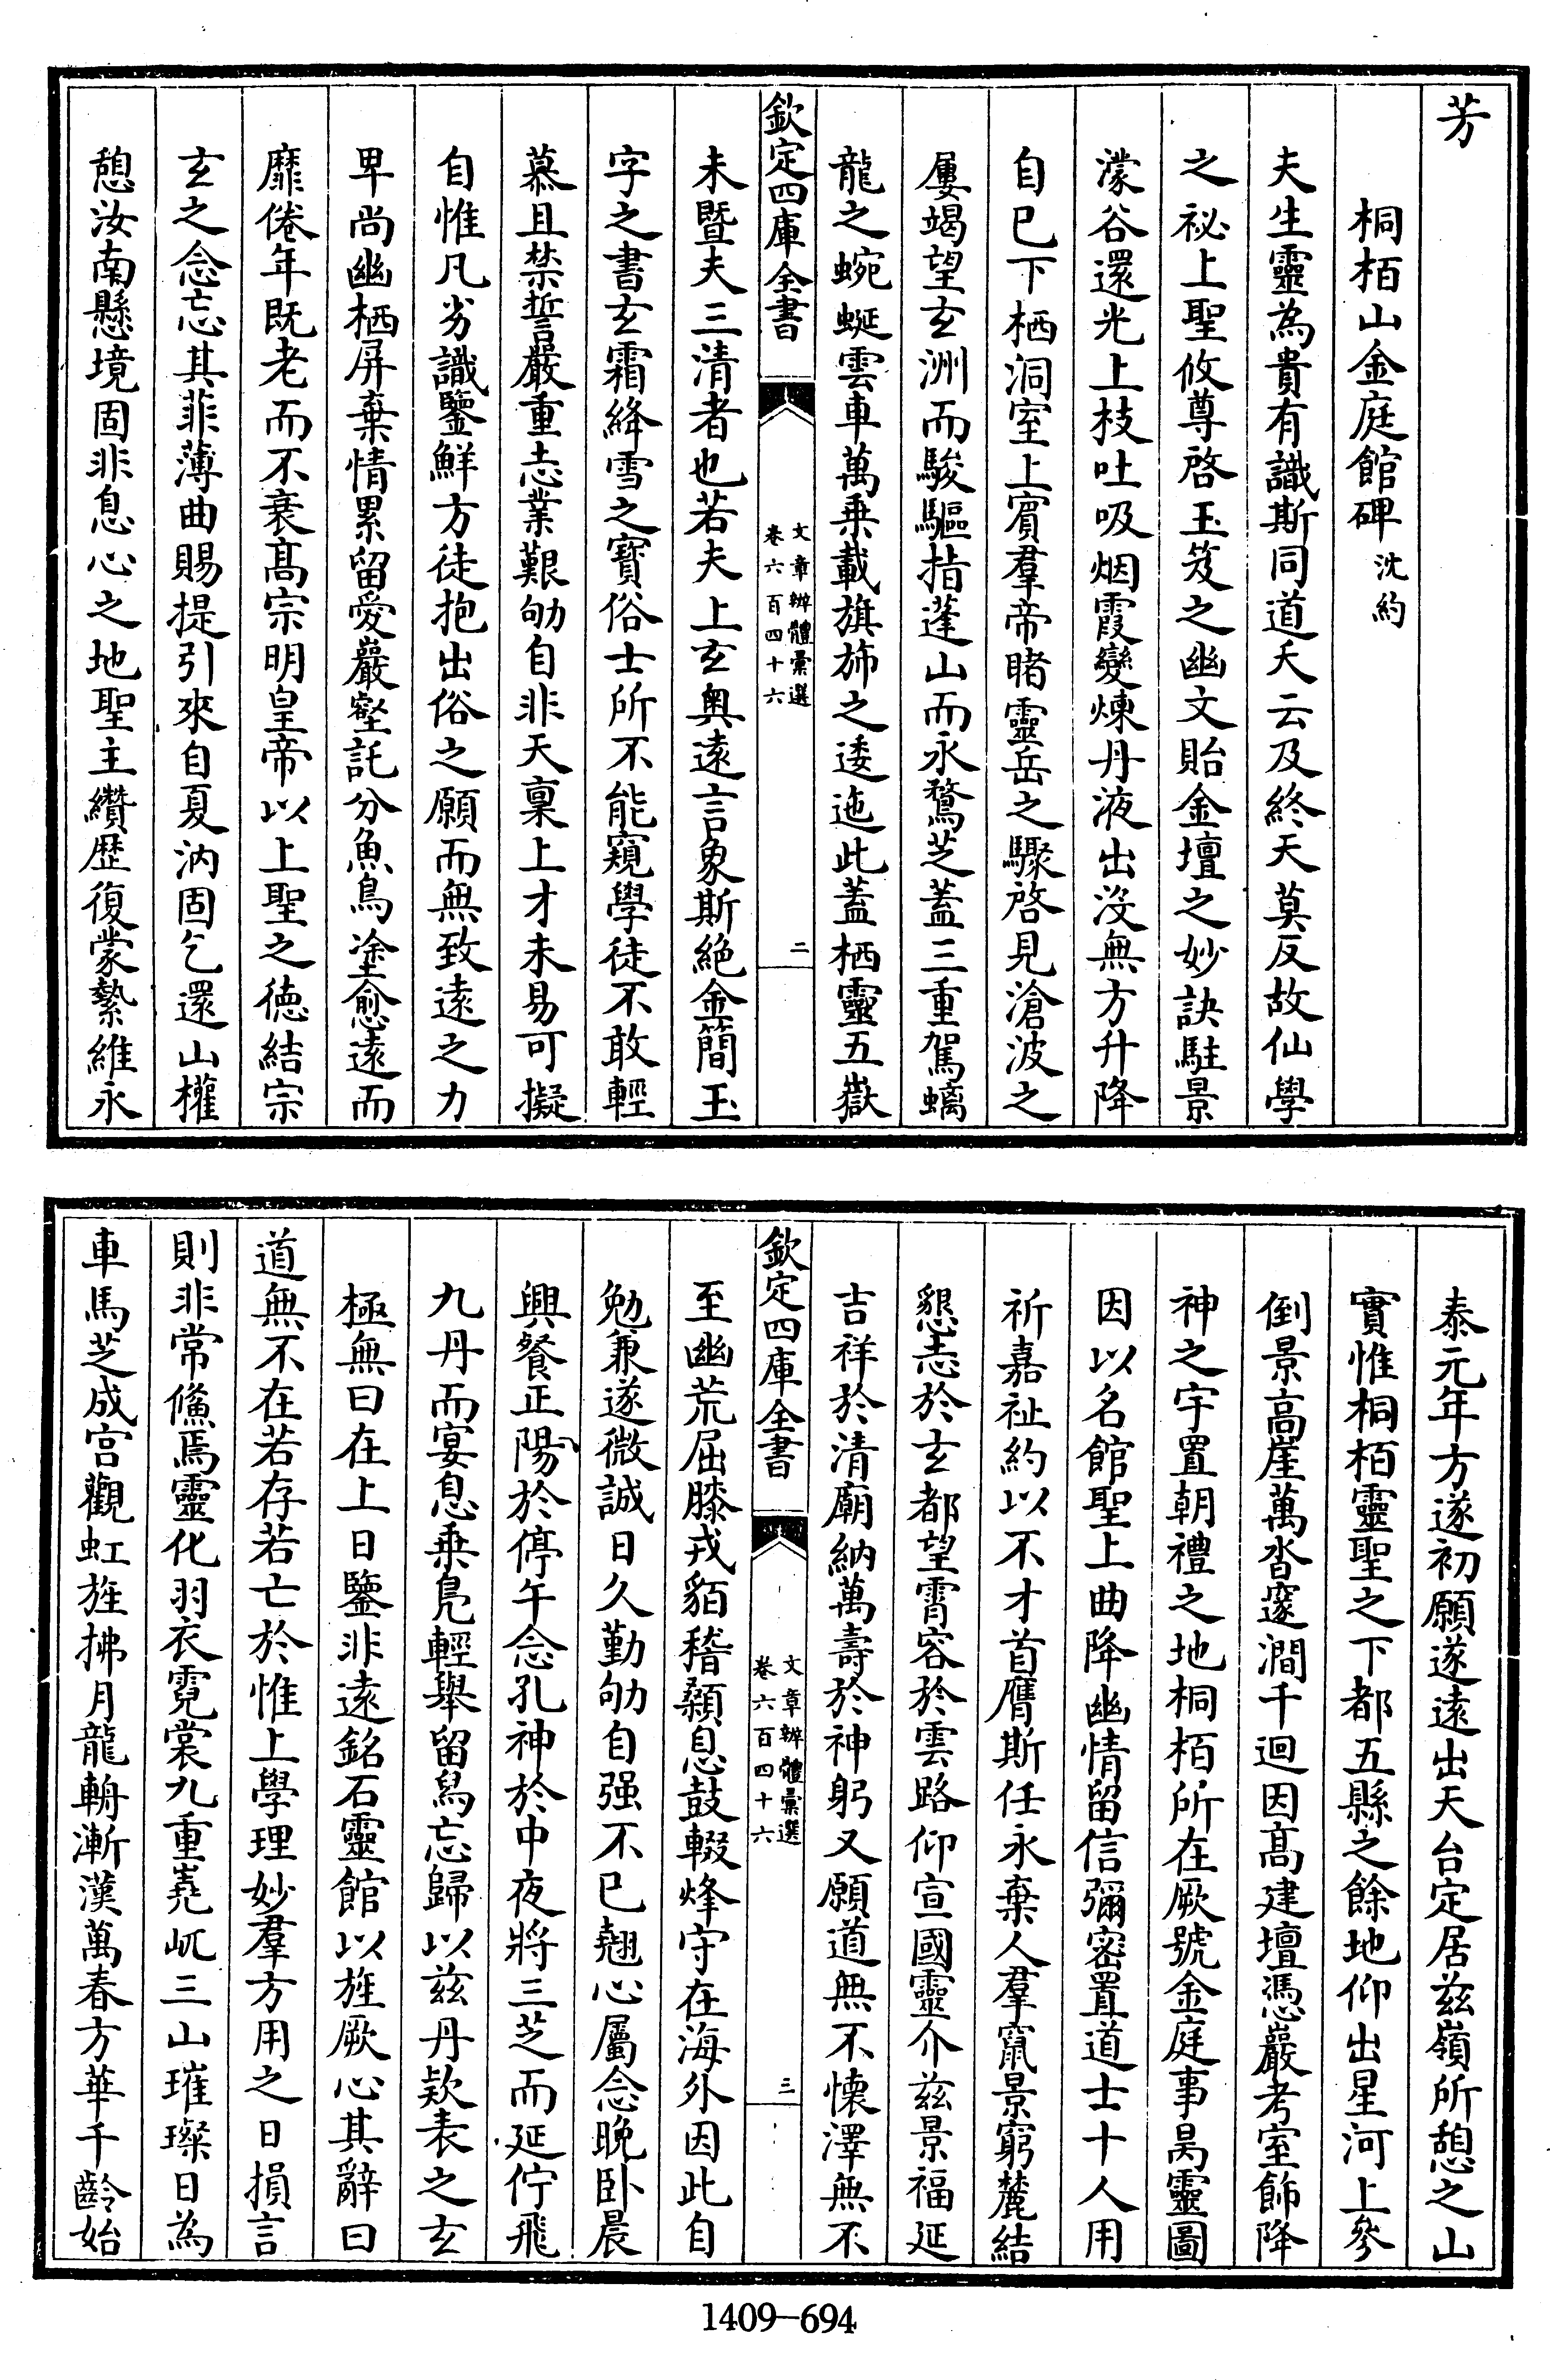 芳
桐栢山金庭館碑 沈約
夫生靈為貴有識斯同道夭云及終天莫反故仙學
之祕上聖攸尊啓玉笈之幽文貽金壇之妙訣駐景
濛谷還光上枝吐吸烟霞變煉丹液出沒無方升降
自已下栖洞室上賓羣帝睹靈岳之驟啓見滄波之
屢竭望玄洲而駿驅指蓬山而永騖芝蓋三重駕螭
龍之蜿蜒雲車萬乗載旗斾之逶迤此蓋栖靈五嶽
欽定四庫全書
文章辨體彙選
卷六百四十六
二
未曁夫三清者也若夫上玄奥遠言象斯絶金簡玉
字之書玄霜絳雪之寳俗士所不能窺學徒不敢輕
慕且禁誓嚴重志業艱劬自非天稟上才未易可擬
自惟凡劣識鑒鮮方徒抱出俗之願而無致遠之力
早尚幽栖屏棄情累留愛巖壑託分魚鳥塗愈遠而
靡倦年既老而不衰髙宗明皇帝以上聖之徳結宗
玄之念忘其菲薄曲賜提引來自夏汭固乞還山權
憩汝南懸境固非息心之地聖主纉歴復蒙縶維永
泰元年方遂初願遂遠出天台定居兹嶺所憩之山
實惟桐栢靈聖之下都五縣之餘地仰出星河上參
倒景高崖萬沓邃澗千迴因髙建壇憑巖考室飾降
神之宇置朝禮之地桐栢所在厥號金庭事昺靈圖
因以名館聖上曲降幽情留信彌密置道士十人用
祈嘉祉約以不才首膺斯任永棄人羣竄景窮麓結
懇志於玄都望霄容於雲路仰宣國靈介兹景福延
吉祥於清廟納萬壽於神躬又願道無不懐澤無不
欽定四庫全書
文章辨體彙選
卷六百四十六
三
至幽荒屈膝戎貊稽顙息鼓輟烽守在海外因此自
勉兼遂微誠日久勤劬自强不已翹心屬念晩卧晨
興餐正陽於停午念孔神於中夜將三芝而延佇飛
九丹而宴息乗鳬輕舉留舄忘歸以兹丹欵表之玄
極無曰在上日鑒非遠銘石靈館以旌厥心其辭曰
道無不在若存若亡於惟上學理妙羣方用之日損言
則非常儵焉靈化羽衣霓裳九重嶤屼三山璀璨日為
車馬芝成宫觀虹旌拂月龍輈漸漢萬春方華千齡始
1409-694